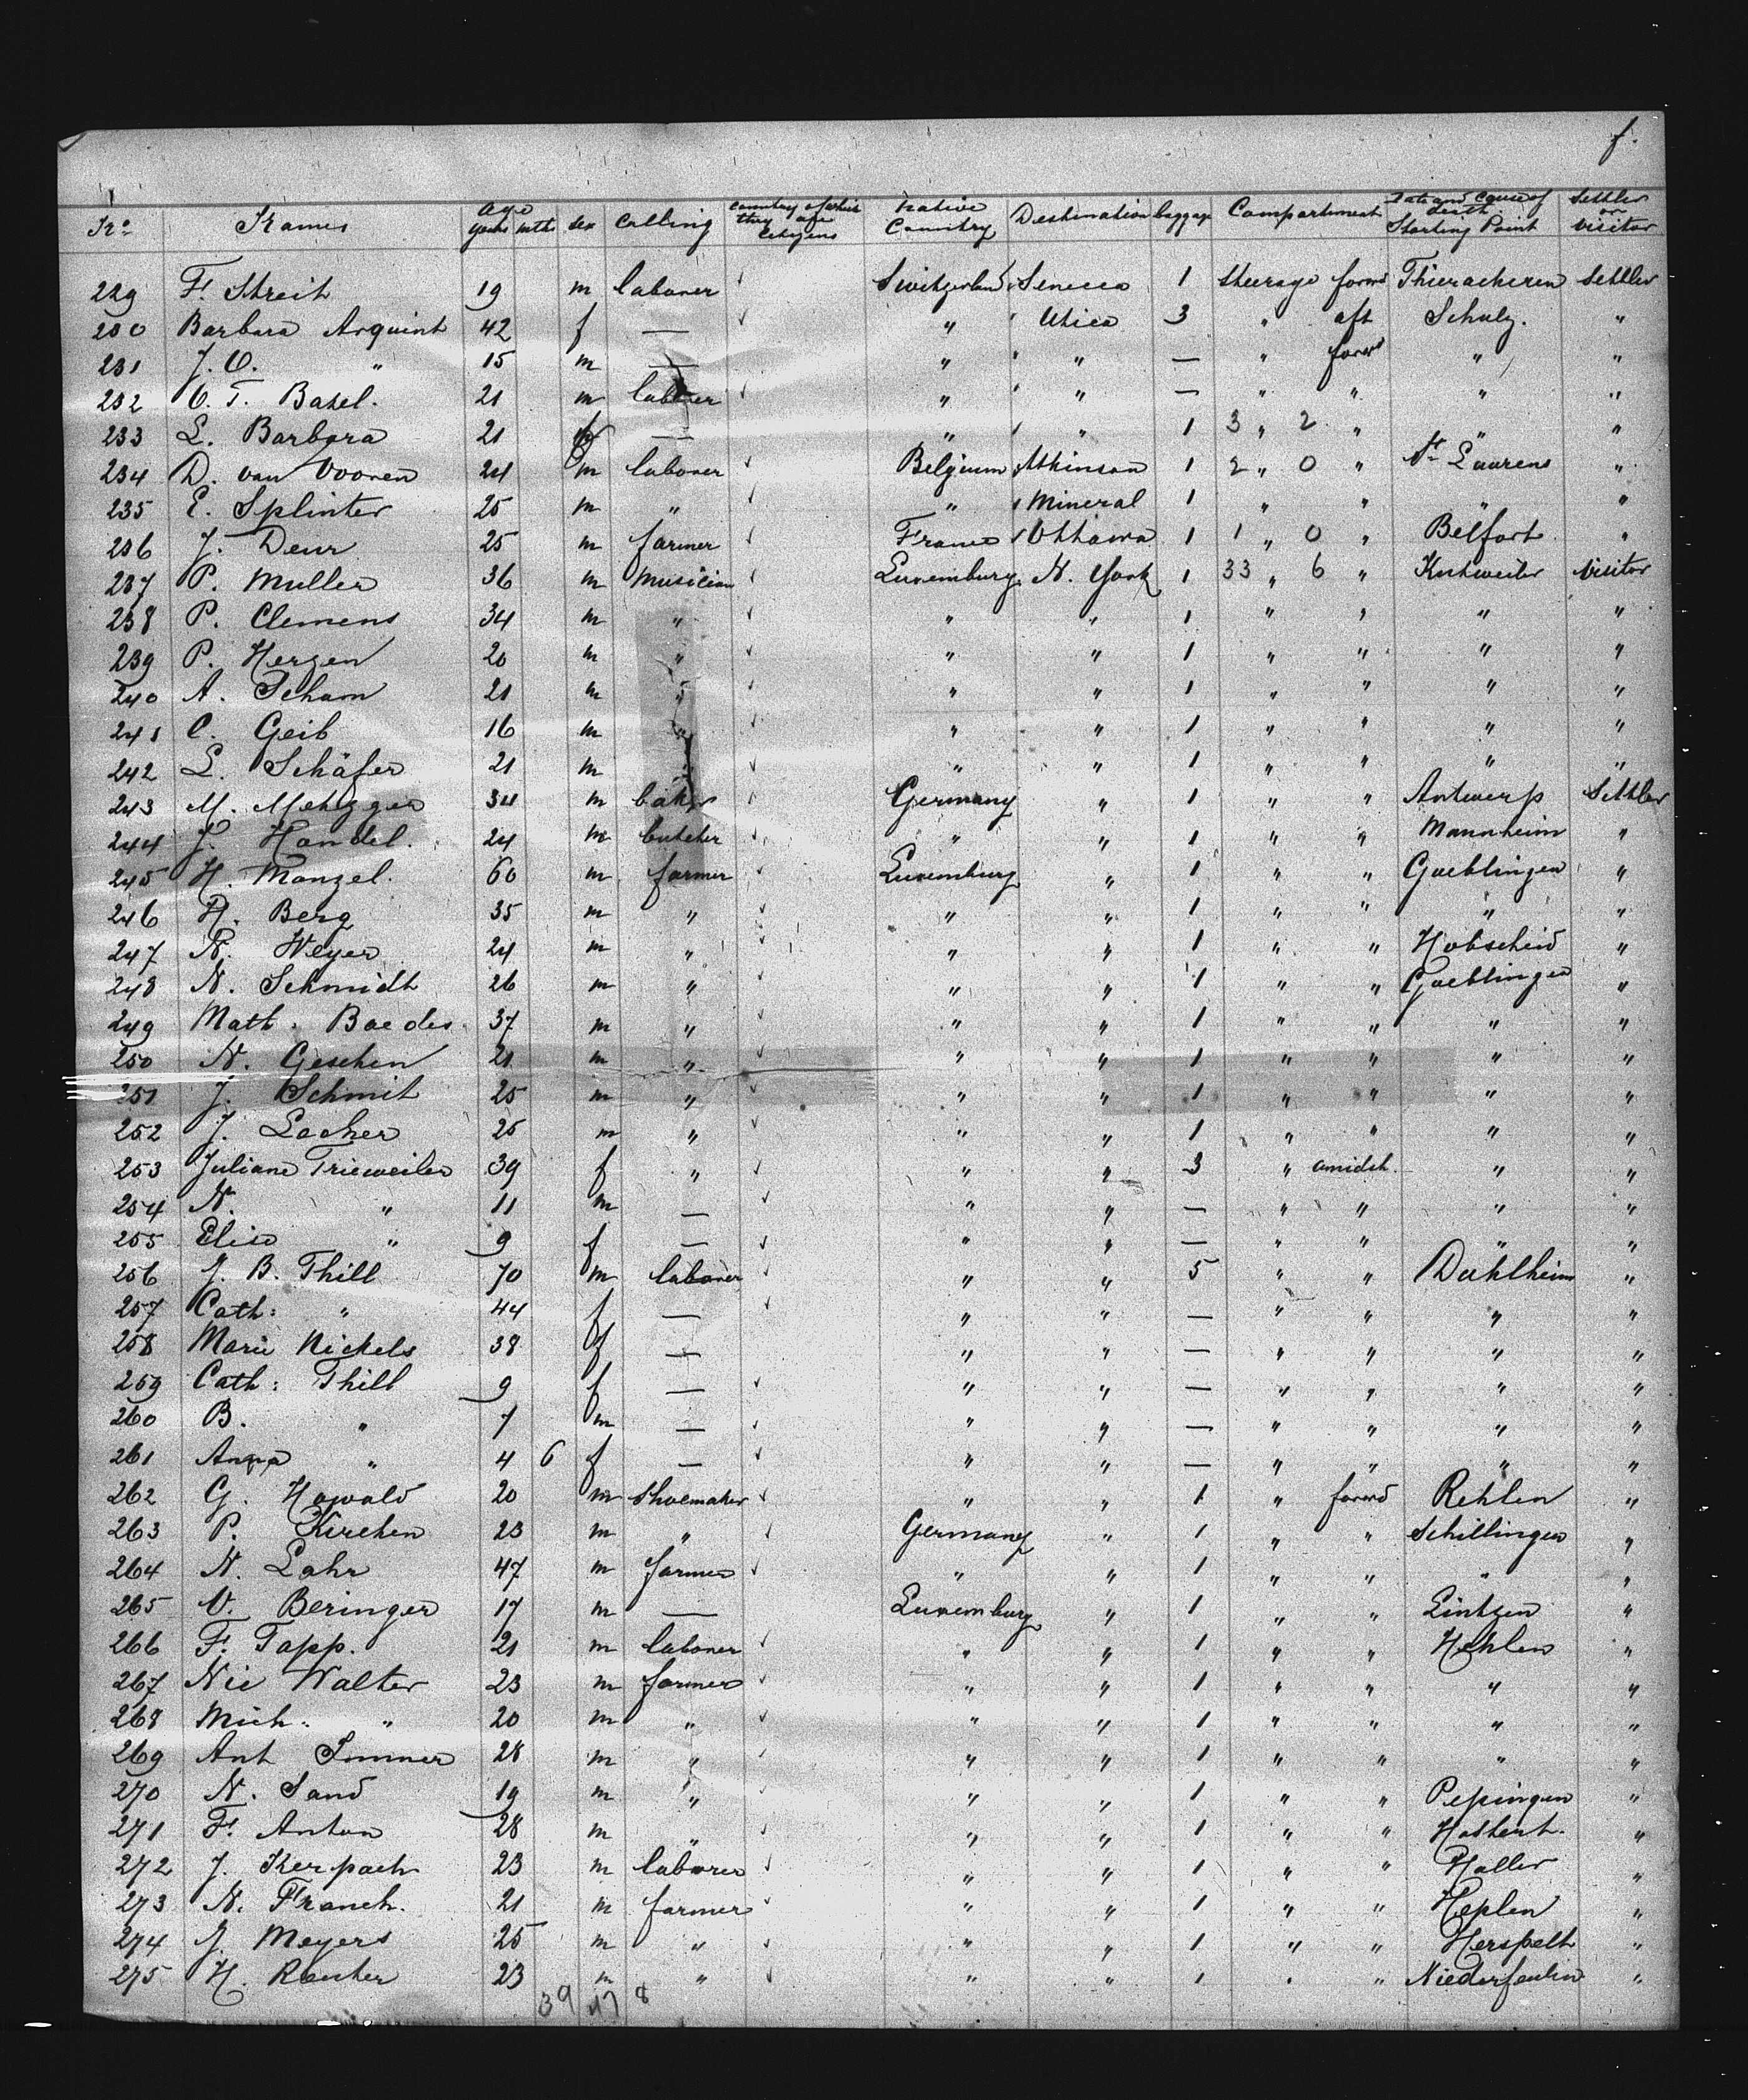 f.
No Names Age years mth sex Calling Country of which they are Citizens Native Country Destination baggage Compartment Date and Cause of death Starting Point Settler or Visitor
229 F. Streit 19 m laborer Switzerland Seneca 1 Steerage forwd Thierachern Settler
230 Barbara Arquint 42 f — " Utica 3 " aft Schulz. "
231 J. O. " 15 m — " " — " forwd " "
232 C. T. Basel. 21 m laborer " " — " " " "
233 L. Barbara 21 f — " " 1 3 " 2 " " "
234 D. van Vooren 24 m laborer Belgium Atkinson 1 2 " 0 " St Laurens "
235 E. Splinter 25 m " " Mineral 1 " " " "
236 J. Deur 25 m farmer France Ottawa 1 1 " 0 " Belfort "
237 P. Muller 36 m musician Luxemburg N. York 1 33 " 6 " Visitor
238 P. Clemens 34 m " " " 1 " " " "
239 P. Hergen 20 m " " " 1 " " " "
240 A. Scham 21 m " " " 1 " " " "
241 C. Geib 16 m " " " 1 " " " "
242 L. Schäfer 21 m " " " 1 " " " "
243 M. Metzger 34 m baker Germany " 1 " " Antwerp Settler
244 J. Handel. 24 m butcher " " 1 " " Mannheim "
245 H. Mangel. 60 m farmer Luxemburg " 1 " " Goeblingen "
246 H. Berg 35 m " " " 1 " " " "
247 N. Weyer 24 m " " " 1 " " Hobscheid "
248 N. Schmidt 26 m " " " 1 " " Goeblingen "
249 Math. Baedes 37 m " " " 1 " " " "
250 N. Geschen 21 m " " " 1 " " " "
251 J. Schmit 25 m " " " 1 " " " "
252 J. Locher 25 m " " " 1 " " " "
253 Juliane Trieweiler 39 f " " " 3 " amidsh. " "
254 N. " 11 m — " " — " " " "
255 Elise " 9 f — " " — " " " "
256 J. B. Thill 70 m laborer " " 5 " " Dahlheim "
257 Cath: " 44 f — " " — " " " "
258 Marie Nickels 38 f — " " — " " " "
259 Cath: Thill 9 f — " " — " " " "
260 B. " 7 m — " " — " " " "
261 Anna " 4 6 f — " " — " " " "
262 G. Howald 20 m Shoemaker " " 1 " forwd Rehlen "
263 P. Kirchen 23 m " Germany " 1 " " Schillingen "
264 N. Lahr 47 m farmer " " 1 " " " "
265 V. Beringer 17 m — Luxemburg " 1 " " Lintgen "
266 F. Tapp. 21 m laborer " " 1 " " Hehlen "
267 Nic Walter 23 m farmer " " 1 " " " "
268 Mich: " 20 m " " " 1 " " " "
269 Ant Simmer 28 m " " " 1 " " " "
270 N. Sand 19 m " " " 1 " " Pepingen "
271 F. Anton 28 m " " " 1 " " Hostert. "
272 J. Kerpach 23 m laborer " " 1 " " Haller "
273 N. Franch. 21 m farmer " " 1 " " Heplen "
274 J. Meyers 25 m " " " 1 " " Herspelt "
275 H. Reuter 23 m " " " 1 " " Niederfeulen "
39 47 8